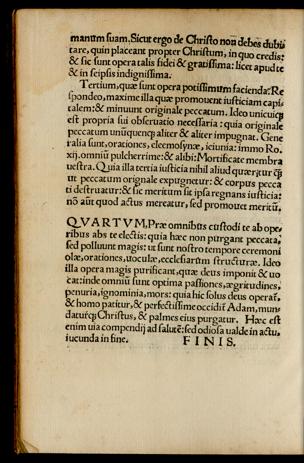 manum suam. Sicut ergo de Christo non debes dubi
tare, quin placeant propter Christum, in quo credis:
& sic sunt opera talis fidei & gratissima: licet apud te
& in seipsis indignissima.
Tertium, quæ sunt opera potissimum facienda: Re
spondeo, maxime illa quæ promouent iusticiam capi
talem: & minuunt originale peccatum. Ideo unicuiq;
est propria sui obseruatio necessaria: quia originale
peccatum unūquenq; aliter & aliter impugnat. Gene
ralia sunt, orationes, eleemosynæ, ieiunia: immo Ro.
xij. omniū pulcherrime: & alibi: Mortificate membra
uestra. Quia illa tertia iusticia nihil aliud quæritur q̃
ut peccatum originale expugnetur: & corpus pecca
ti destruatur: & sic meritum sit ipsa regnans iusticia:
nō aūt quod actus mereatur, sed promouet meritū.
QVARTVM, Præ omnibus custodi te ab ope,
ribus abs te electis: quia hæc non purgant peccata,
sed polluunt magis: ut sunt nostro tempore ceremoni
olæ, orationes, uoculæ, ecclesiarum structuræ. Ideo
illa opera magis purificant, quæ deus imponit & uo
cat: inde omniū sunt optima passiones, ægritudines,
penuria, ignominia, mors: quia hic solus deus operat,
& homo patitur, & perfectissime occidit Adam, mun
daturq; Christus, & palmes eius purgatur. Hæc est
enim uia compendij ad salutē: sed odiosa ualde in actu,
iucunda in fine. FINIS.